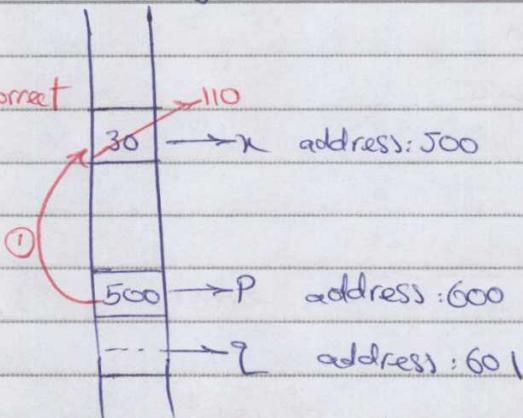 orrect
110
30 → x address: 500
①
500 → P address: 600
--- → q address: 601